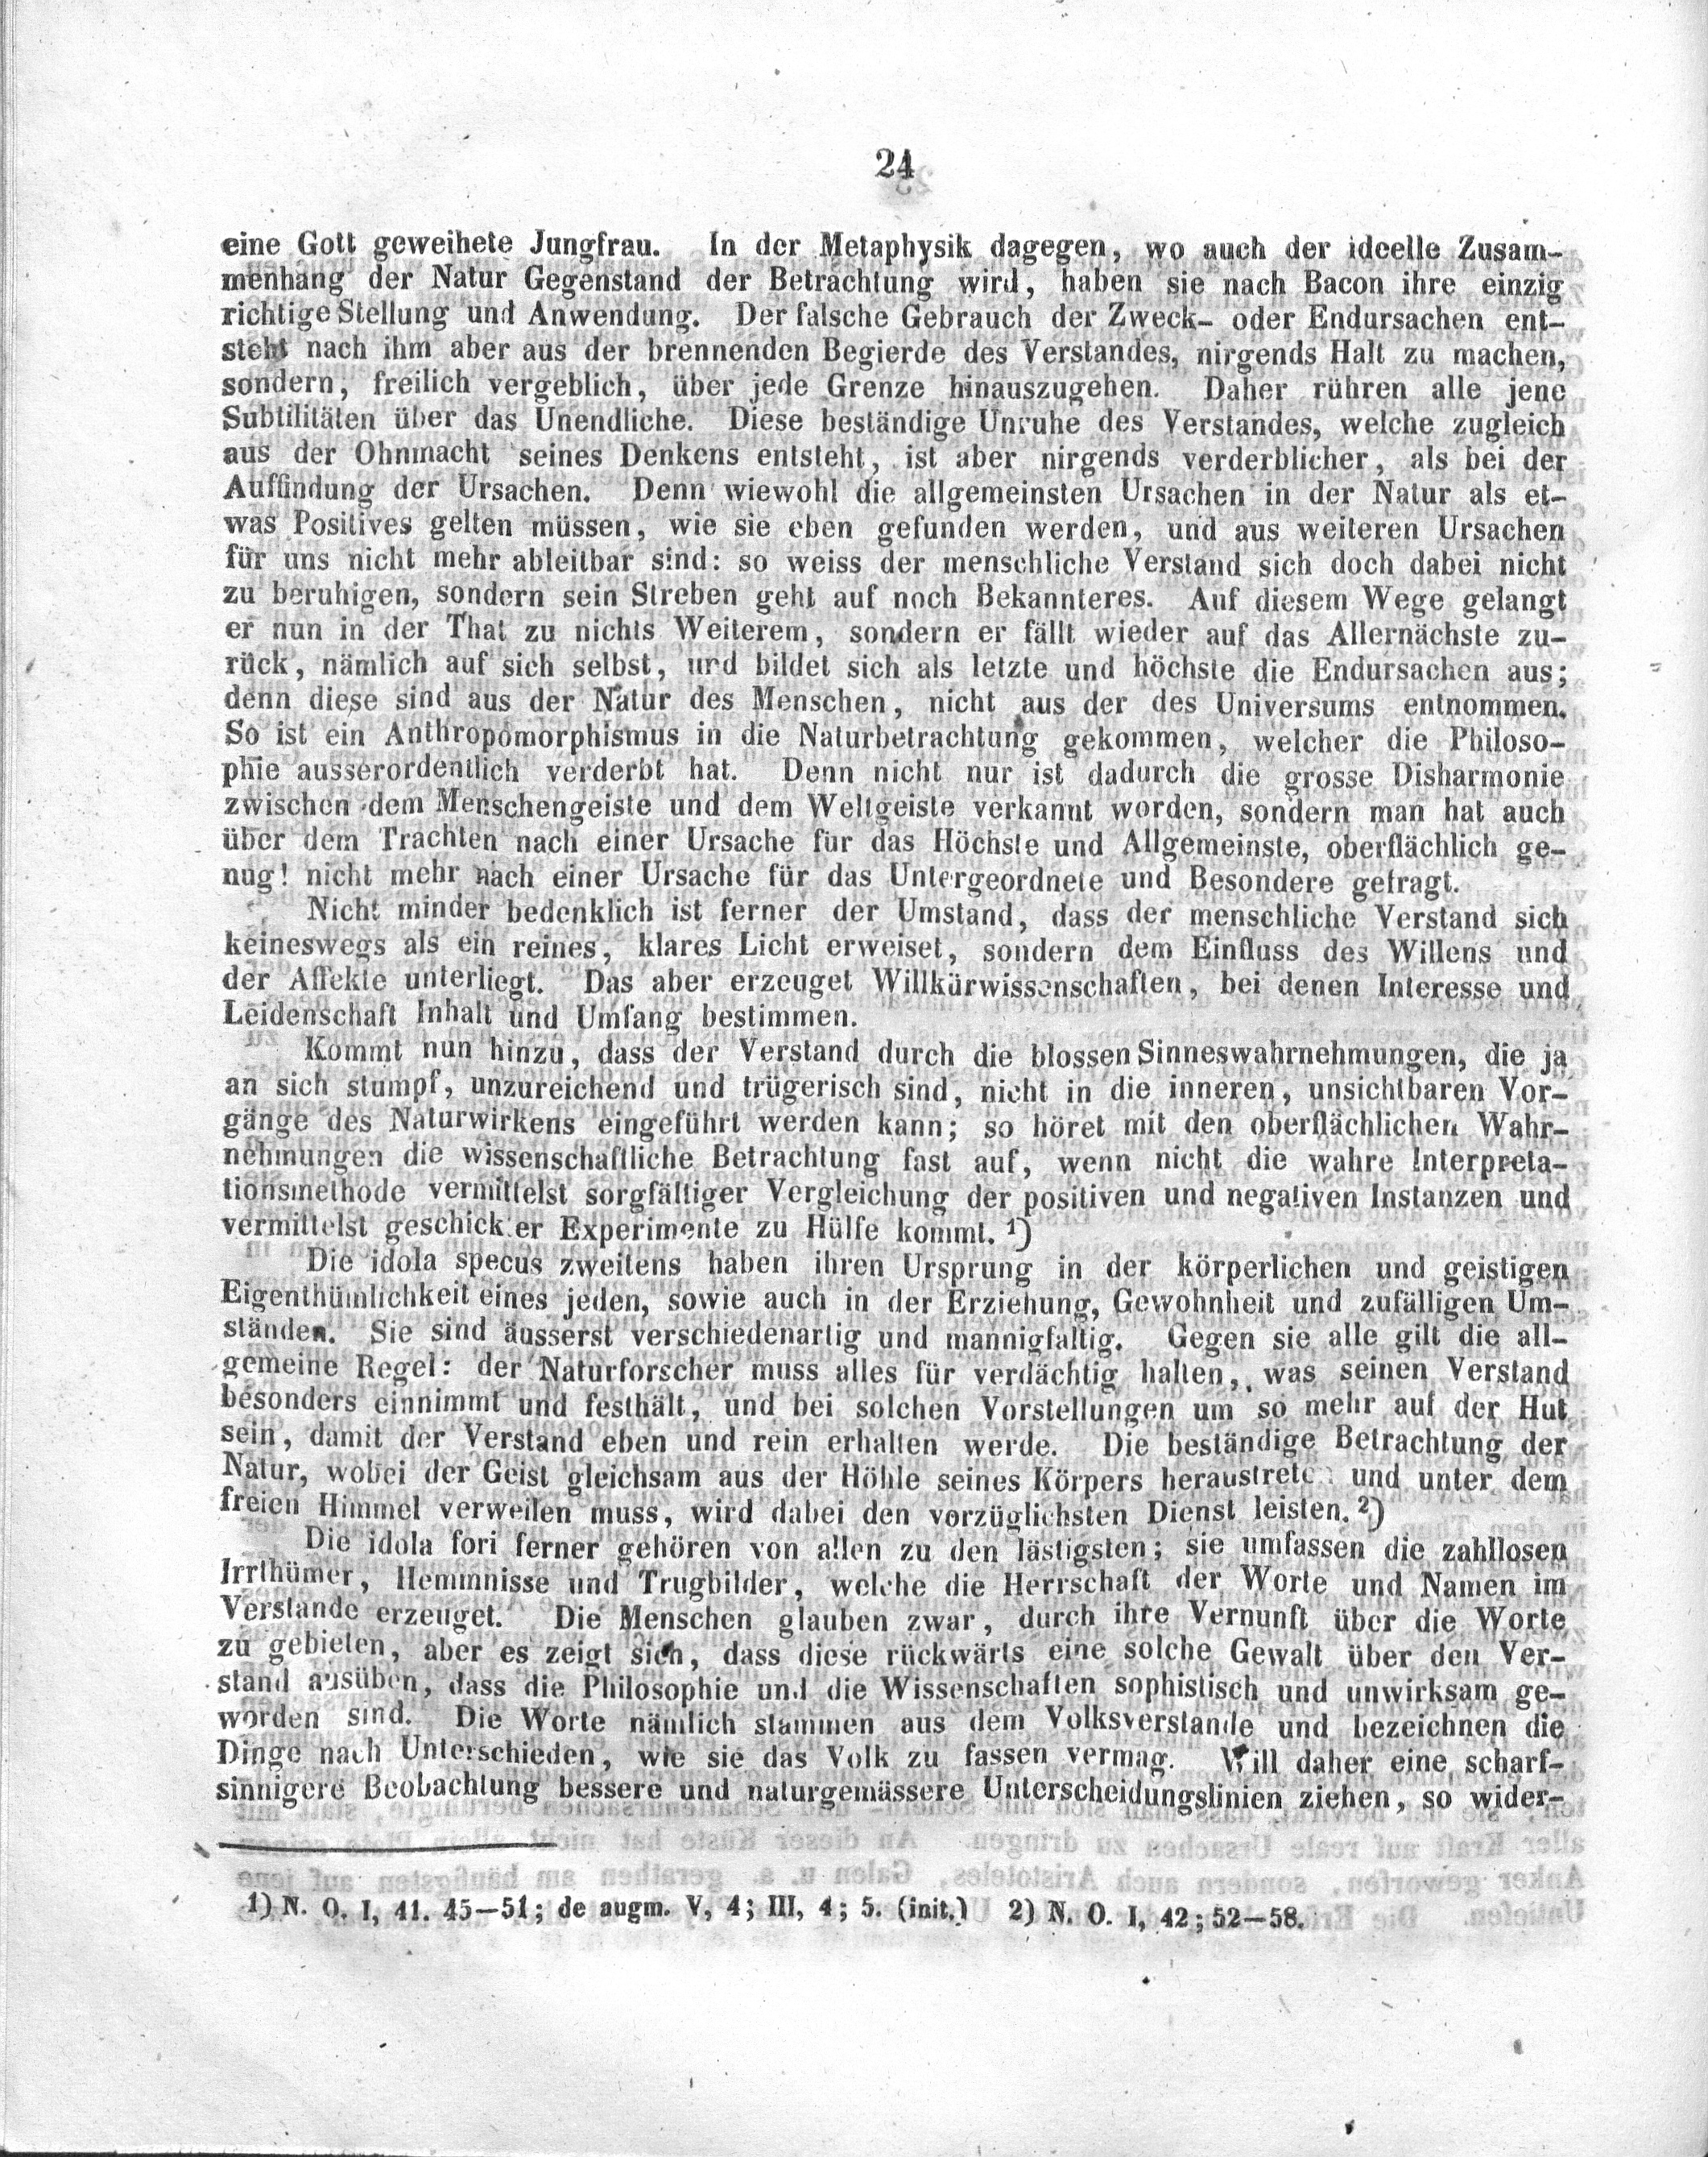 24
eine Gott geweihete Jungfrau. In der Metaphysik dagegen, wo auch der ideelle Zusam-
menhang der Natur Gegenstand der Betrachtung wird, haben sie nach Bacon ihre einzig
richtige Stellung und Anwendung. Der falsche Gebrauch der Zweck- oder Endursachen ent-
steht nach ihm aber aus der brennenden Begierde des Verstandes, nirgends Halt zu machen,
sondern, freilich vergeblich, über jede Grenze hinauszugehen. Daher rühren alle jene
Subtilitäten über das Unendliche. Diese beständige Unruhe des Verstandes, welche zugleich
aus der Ohnmacht seines Denkens entsteht, ist aber nirgends verderblicher, als bei der
Auffindung der Ursachen. Denn wiewohl die allgemeinsten Ursachen in der Natur als et-
was Positives gelten müssen, wie sie eben gefunden werden, und aus weiteren Ursachen
für uns nicht mehr ableitbar sind: so weiss der menschliche Verstand sich doch dabei nicht
zu beruhigen, sondern sein Streben geht auf noch Bekannteres. Auf diesem Wege gelangt
er nun in der That zu nichts Weiterem, sondern er fällt wieder auf das Allernächste zu-
rück, nämlich auf sich selbst, und bildet sich als letzte und höchste die Endursachen aus;
denn diese sind aus der Natur des Menschen, nicht aus der des Universums entnommen.
So ist ein Anthropomorphismus in die Naturbetrachtung gekommen, welcher die Philoso-
phie ausserordentlich verderbt hat. Denn nicht nur ist dadurch die grosse Disharmonie
zwischen dem Menschengeiste und dem Weltgeiste verkannt worden, sondern man hat auch
über dem Trachten nach einer Ursache für das Höchste und Allgemeinste, oberflächlich ge-
nug! nicht mehr nach einer Ursache für das Untergeordnete und Besondere gefragt.
Nicht minder bedenklich ist ferner der Umstand, dass der menschliche Verstand sich
keineswegs als ein reines, klares Licht erweiset, sondern dem Einfluss des Willens und
der Affekte unterliegt. Das aber erzeuget Willkürwissenschaften, bei denen Interesse und
Leidenschaft Inhalt und Umfang bestimmen.
Kommt nun hinzu, dass der Verstand durch die blossen Sinneswahrnehmungen, die ja
an sich stumpf, unzureichend und trügerisch sind, nicht in die inneren, unsichtbaren Vor-
gänge des Naturwirkens eingeführt werden kann; so höret mit den oberflächlichen Wahr-
nehmungen die wissenschaftliche Betrachtung fast auf, wenn nicht die wahre Interpreta-
tionsmethode vermittelst sorgfältiger Vergleichung der positiven und negativen Instanzen und
vermittelst geschickter Experimente zu Hülfe kommt. 1)
Die idola specus zweitens haben ihren Ursprung in der körperlichen und geistigen
Eigenthümlichkeit eines jeden, sowie auch in der Erziehung, Gewohnheit und zufälligen Um-
ständen. Sie sind äusserst verschiedenartig und mannigfaltig. Gegen sie alle gilt die all-
gemeine Regel: der Naturforscher muss alles für verdächtig halten, was seinen Verstand
besonders einnimmt und festhält, und bei solchen Vorstellungen um so mehr auf der Hut
sein, damit der Verstand eben und rein erhalten werde. Die beständige Betrachtung der
Natur, wobei der Geist gleichsam aus der Höhle seines Körpers heraustreten und unter dem
freien Himmel verweilen muss, wird dabei den vorzüglichsten Dienst leisten. 2)
Die idola fori ferner gehören von allen zu den lästigsten; sie umfassen die zahllosen
Irrthümer, Hemmnisse und Trugbilder, welche die Herrschaft der Worte und Namen im
Verstande erzeuget. Die Menschen glauben zwar, durch ihre Vernunft über die Worte
zu gebieten, aber es zeigt sich, dass diese rückwärts eine solche Gewalt über den Ver-
stand ausüben, dass die Philosophie und die Wissenschaften sophistisch und unwirksam ge-
worden sind. Die Worte nämlich stammen aus dem Volksverstande und bezeichnen die
Dinge nach Unterschieden, wie sie das Volk zu fassen vermag. Will daher eine scharf-
sinnigere Beobachtung bessere und naturgemässere Unterscheidungslinien ziehen, so wider-
1) N. O. I, 41. 45—51; de augm. V, 4; III, 4; 5. (init.) 2) N. O. I, 42; 52—58.